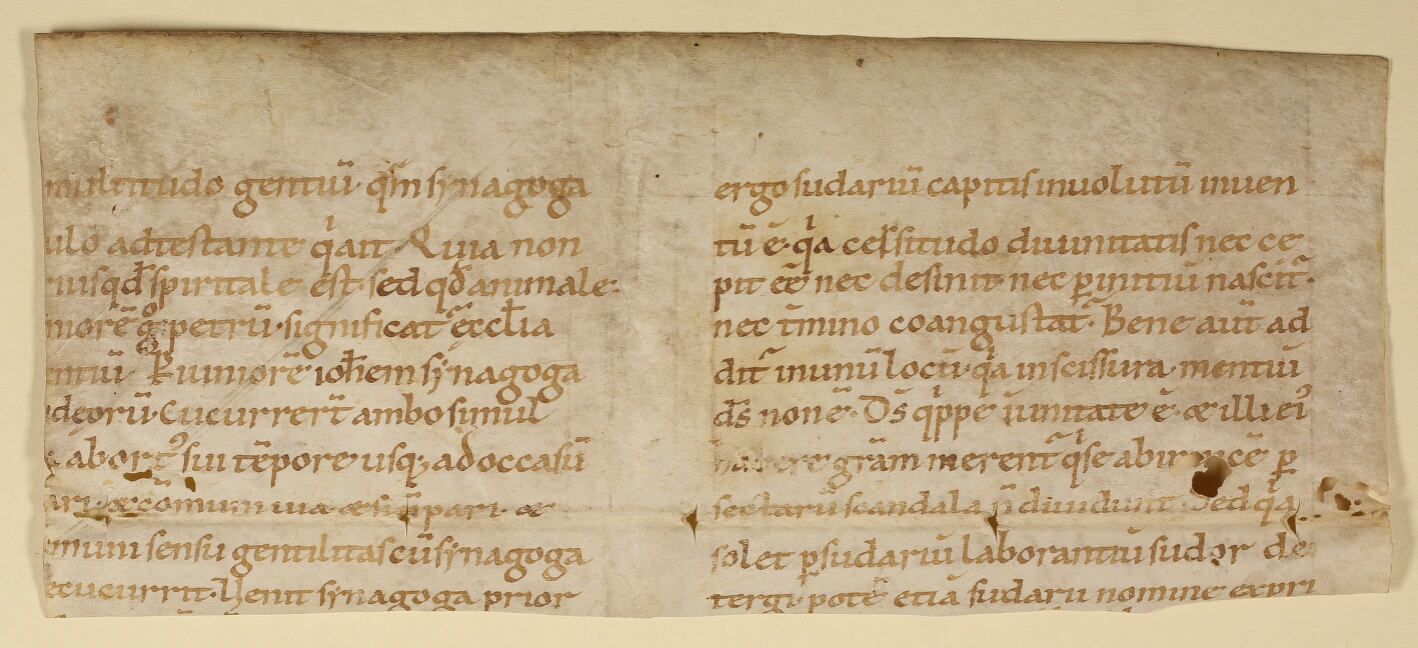 multitudo gentiū· qm̄ synagoga
ulo adtestante q̇ ait Quia non
usqd̄ spiritale est· sed qd̄ animale·
morē g̊ petrū· significat̄ ęccl̄ia
ntiū· Ruimorē ioh̄em synagoga
deorū· Cucurrer̄t ambo simul
abort᾽ sui tēpore usq; ad occasū
ari· & cōmuni uia· & si n̄ pari· &
muni sensu gentilitas cū synagoga
cucurrit· Uenit synagoga prior
ergo sudariū capitis inuolutū inuen
tū ē· q̇a celsitudo diuinitatis nec cę
pit eē nec desinit· nec p̱ initiū nascit᷑·
nec t̄mino coangustat᷑· Bene aūt ad
dit᷑ inunū locū· q̇a inscissura mentiū
ds̄ non ē· Ds̄ q̇ppe ī unitate ē· & illi ei᾽
habere gr̄am merent᷑ q̇ se abinuicē p̱
sectarū scandala n̄ diuidunt· Sed q̇a
solet p̱ sudariū laborantiū sudor de
tergi· potē etiā sudarii nomine expri